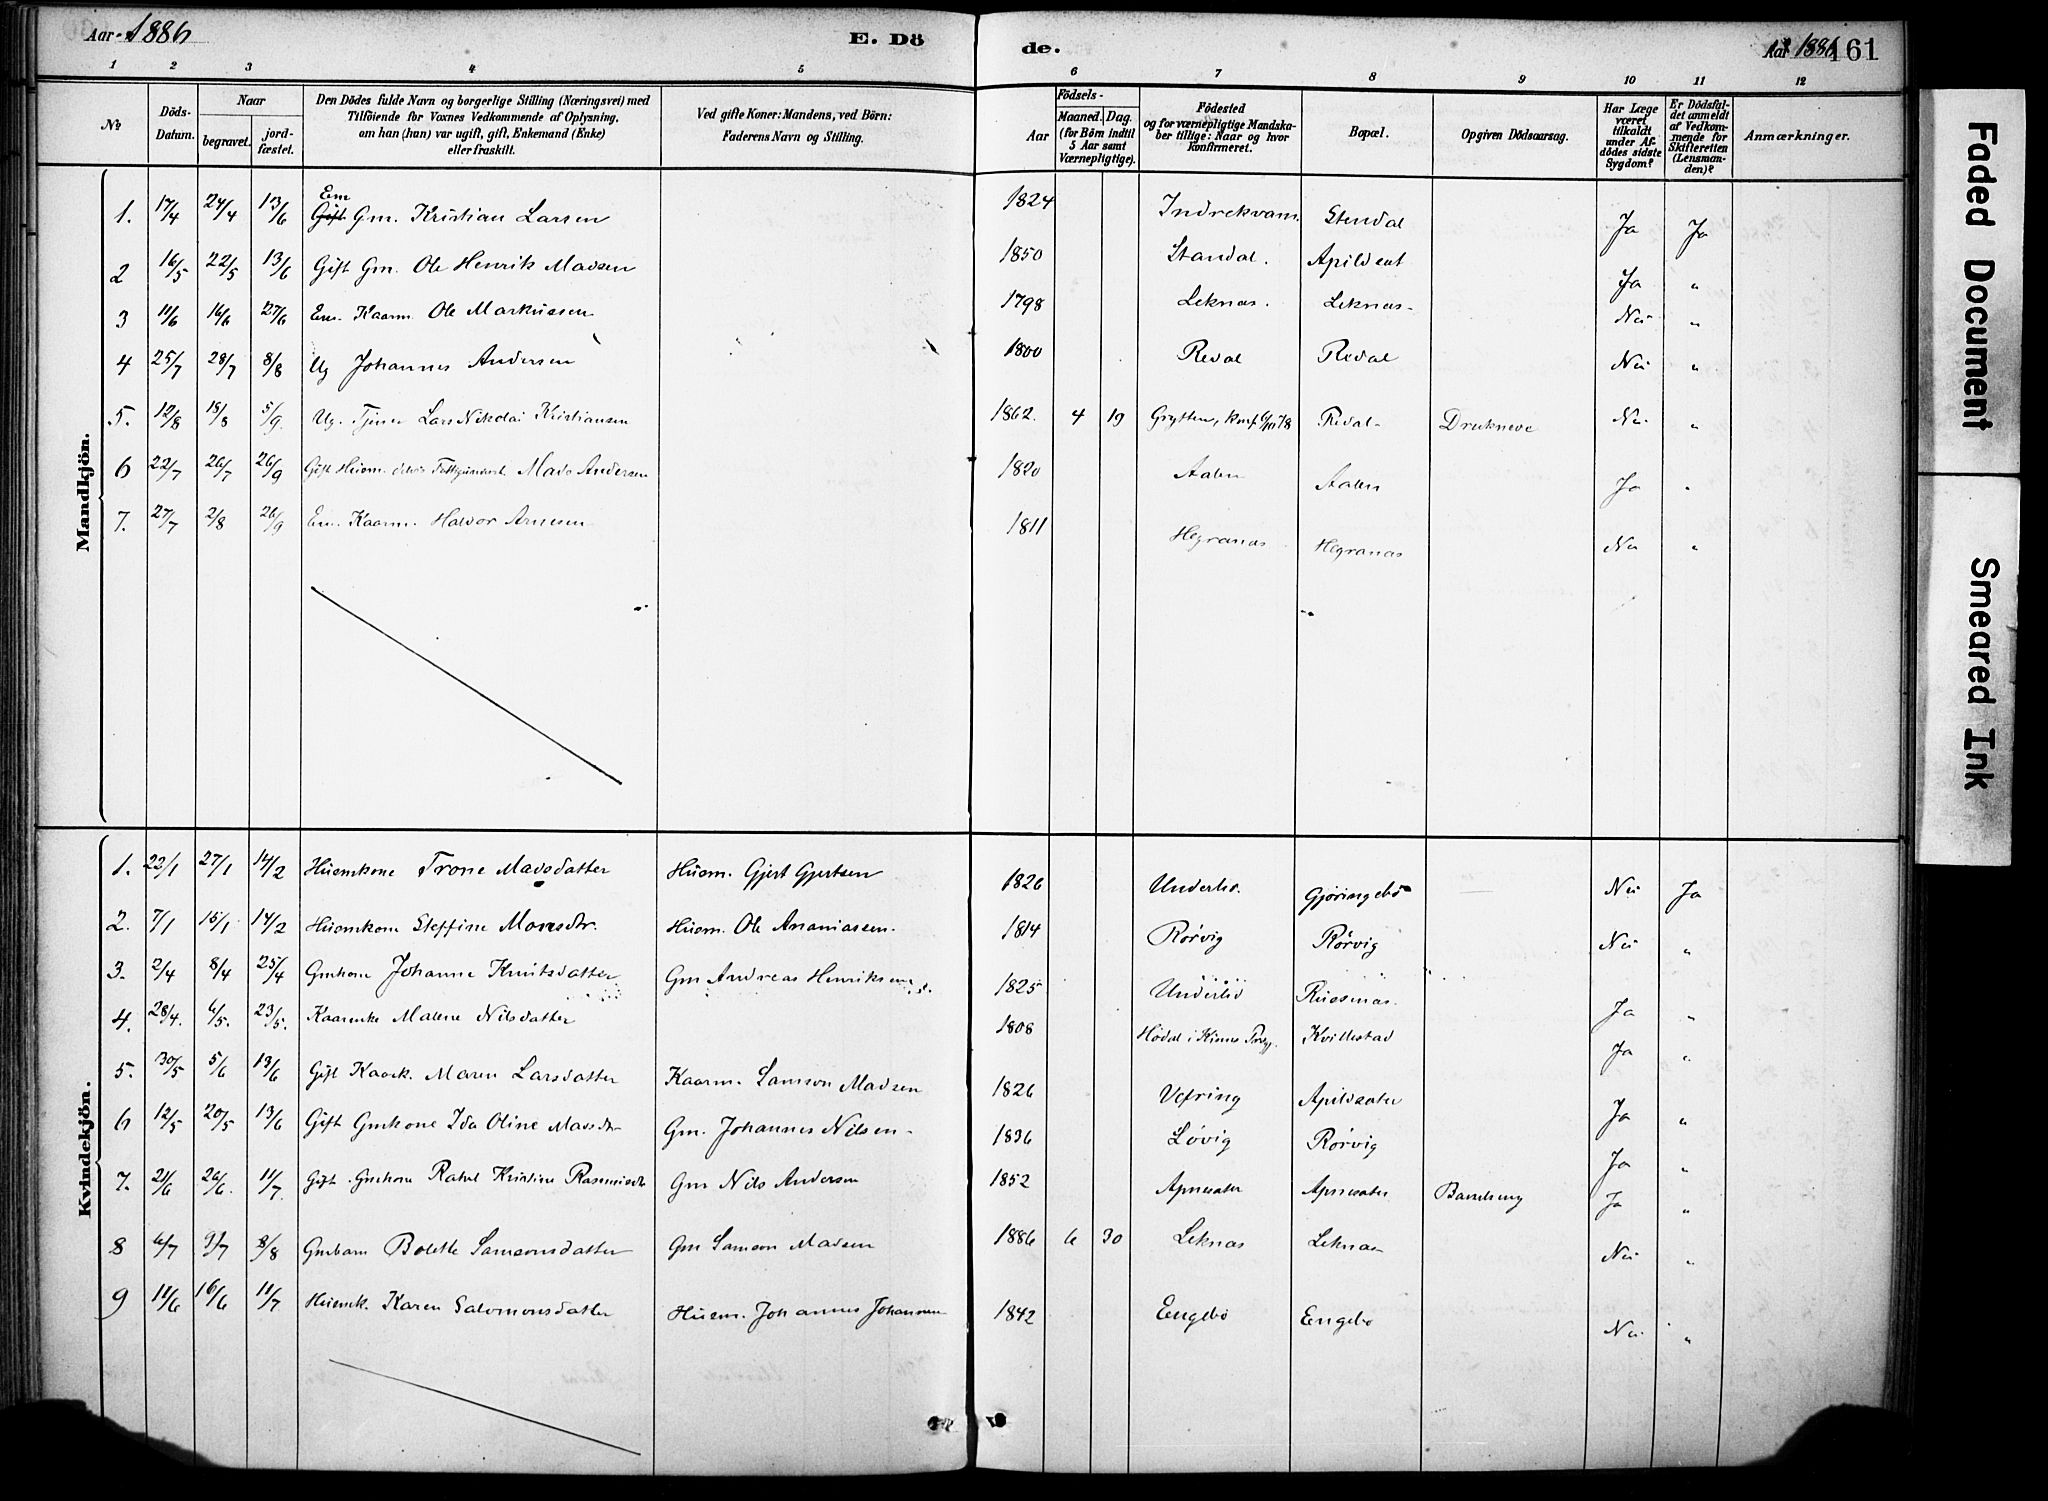 Aar 1886
E. Dö
de.
Aar 1886
161
1 2 3 4 5 6 7 8 9 10 11 12
№
Döds-Datum.
Naar
begravet.
jordfæstet.
Den Dödes fulde Navn og borgerlige Stilling (Næringsvei) med
Tilföiende for Voxnes Vedkommende af Oplysning,
om han (hun) var ugift, gift, Enkemand (Enke)
eller fraskilt.
Ved gifte Koner: Mandens, ved Börn:
Faderens Navn og Stilling.
Födsels-
Aar
Maaned. Dag.
(for Börn indtil
5 Aar samt
Værnepligtige).
Födested
og for værnepligtige Mandskaber tillige: Naar og hvor
konfirmeret.
Bopæl.
Opgiven Dödsaarsag.
Har Læge
været
tilkaldt
under Afdödes sidste
Sygdom?
Er Dödsfaldet anmeldt
af Vedkommende for
Skifteretten
(Lensmanden)?
Anmærkninger.
Mandkjön.
1. 17/4 24/4 13/6 Em Gift Gm. Kristian Larsen 1824 Indrekvam Stendal Ja Ja
2 16/5 22/5 13/6 Gift Gm. Ole Henrik Madsen 1850 Standal. Ja "
3 11/6 16/6 27/6 Em. Kaarm. Ole Markussen 1798 Leknas. Leknas- Nei "
4 25/7 28/7 8/8 Ug Johannes Andersen 1800 Redal Redal Nei "
5. 12/8 18/8 5/9. Ug. Tjener Lars Nikolai Kristiansen 1862. 4 19 Grytten, Redal- Druknede Nei. "
6 22/7 26/7 26/9 Gift Husm. Mads Andersen 1820 Aalen Aalen Ja "
7. 27/7 2/8 26/9 Em. Kaarm. Halvor Arnesen 1811 Hegranas Hegranas Nei "
Kvindekjön.
1. 22/1 27/1 14/2 Husmkone Trone Madsdatter Husm. Gjert Gjertsen 1826 Underlid. Gjøringebø Nei Ja
2. 7/1 15/1 14/2 Husmkone Steffine Monsdtr. Husm. Ole Ananiassen. 1814 Rørvig Rørvig Nei "
3. 2/4 8/4 25/4 Gmkone Johanne Knutsdatter Gm Andreas Henriksen 1825 Underlid Russenas. Ja "
4. 28/4. 6/5. 23/5. Kaarenke Malene Nilsdatter 1808 Hødal i Kinns Præg. Kvillestad Ja "
5. 30/5 5/6 13/6 Gift Kaark. Maren Larsdatter Kaarm. Samson Madsen 1826 Vefring Apildsater Ja "
6 12/5 20/5 13/6 Gift Gmkone Ida Oline Madsdtr Gm. Johannes Nilsen- 1836 Løvig Rørvig Ja "
7. 21/6 26/6. 11/7. Gift Gmkone Rakel Kristine Rasmusdtr Gm Nils Andersen 1852 Apnesater Apnesater Barselseng Ja "
8 6/7 9/7 8/8 Gmbarn Bolette Samsonsdatter Gm Samson Madsen 1886 6 30 Leknas Leknas Nei "
9 11/6 16/6 11/7 Husmk. Karen Salomonsdatter Husm. Johannes Johannesen 1842 Engebø Engebø Nei "
Faded Document
Smeared Ink